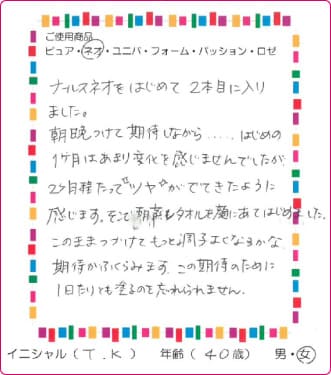 ご使用商品
ピュア・ネオ・ユニバ・フォーム・パッション・ロゼ
ナルスネオをはじめて 2本目に入り
ました。
朝晩つけて期待しながら..... はじめの
1ヶ月はあまり変化を感じませんでしたが
2ヶ月程たって"ツヤ"がでてきたように
感じます。そこで朝蒸しタオルを顔にあてはじめました。
このままつづけて もっと調子よくなるかな
期待がふくらみます。この期待のために
1日たりとも塗るのを忘れられません。
イニシャル(T.K) 年齢(40歳) 男・女